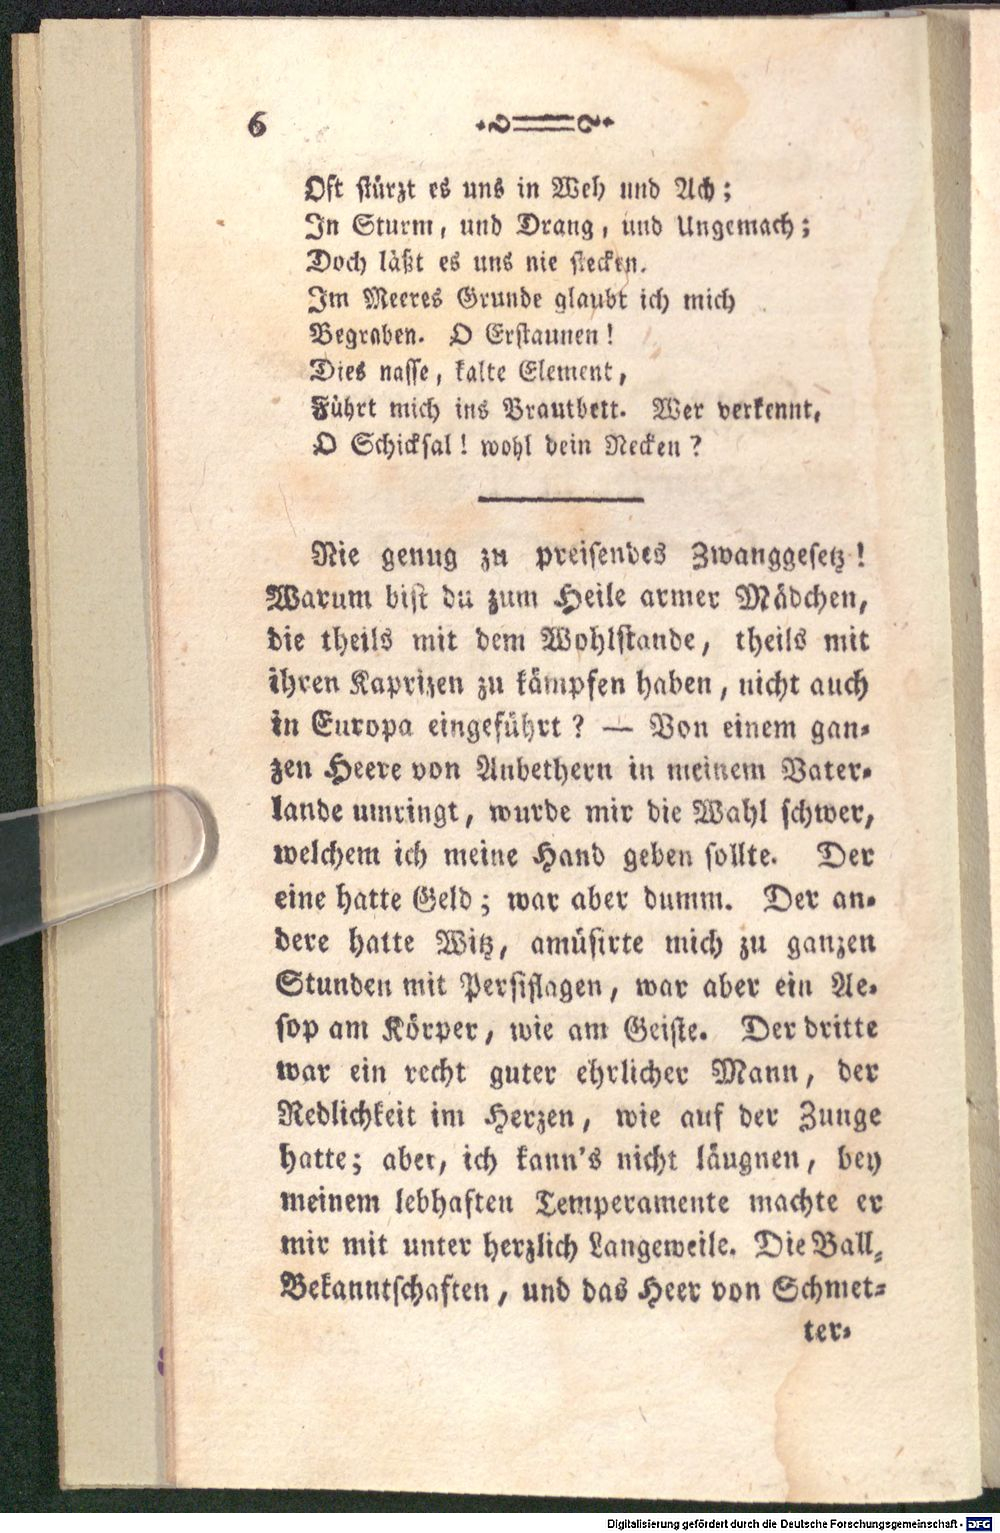 6
Oft stürzt es uns in Weh und Ach;
In Sturm, und Drang, und Ungemach;
Doch läßt es uns nie stecken.
Im Meeres Grunde glaubt ich mich
Begraben. O Erstaunen!
Dies nasse, kalte Element,
Führt mich ins Brautbett. Wer verkennt,
O Schicksal! wohl dein Necken?
Nie genug zu preisendes Zwanggesetz!
Warum bist du zum Heile armer Mädchen,
die theils mit dem Wohlstande, theils mit
ihren Kaprizen zu kämpfen haben, nicht auch
in Europa eingeführt? — Von einem gan-
zen Heere von Anbethern in meinem Vater-
lande umringt, wurde mir die Wahl schwer,
welchem ich meine Hand geben sollte. Der
eine hatte Geld; war aber dumm. Der an-
dere hatte Witz, amüsirte mich zu ganzen
Stunden mit Persiflagen, war aber ein Ae-
sop am Körper, wie am Geiste. Der dritte
war ein recht guter ehrlicher Mann, der
Redlichkeit im Herzen, wie auf der Zunge
hatte; aber, ich kann's nicht läugnen, bey
meinem lebhaften Temperamente machte er
mir mit unter herzlich Langeweile. Die Ball-
Bekanntschaften, und das Heer von Schmet-
ter-
Digitalisierung gefördert durch die Deutsche Forschungsgemeinschaft - DFG